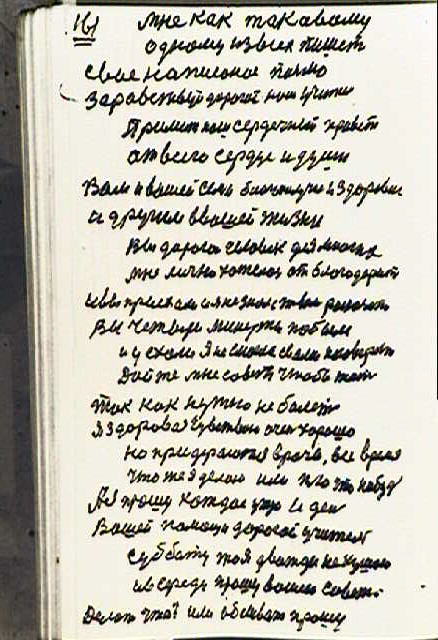 161 Мне как таковому
одному из всех пишет
свое написаное письмо
Здравствуй дорогой наш учитель
Прими наш сердечный привет
от всего сердца и души
Вам и вашей семье благополучие и здоровие
в вашей жизни
Вы дорогой человек для многих
мне лично хотелось отблагодарить
и вы приехали и я не
Вы четыре минуты побыли
и уехали Я не смогла с вами поговорить
Дайте мне совет чтобы жить
Так как нужно не болеть
Я здорова чувствую очен хорошо
но придираются врачи, все время
что же я делаю или что то нибудь
А я прошу каждое утро и ден
Вашей помощи дорогой учитель
субботу тоя дважди не кушаю
и в среду прошу вашего совета
Делать что? или обеваю прошу